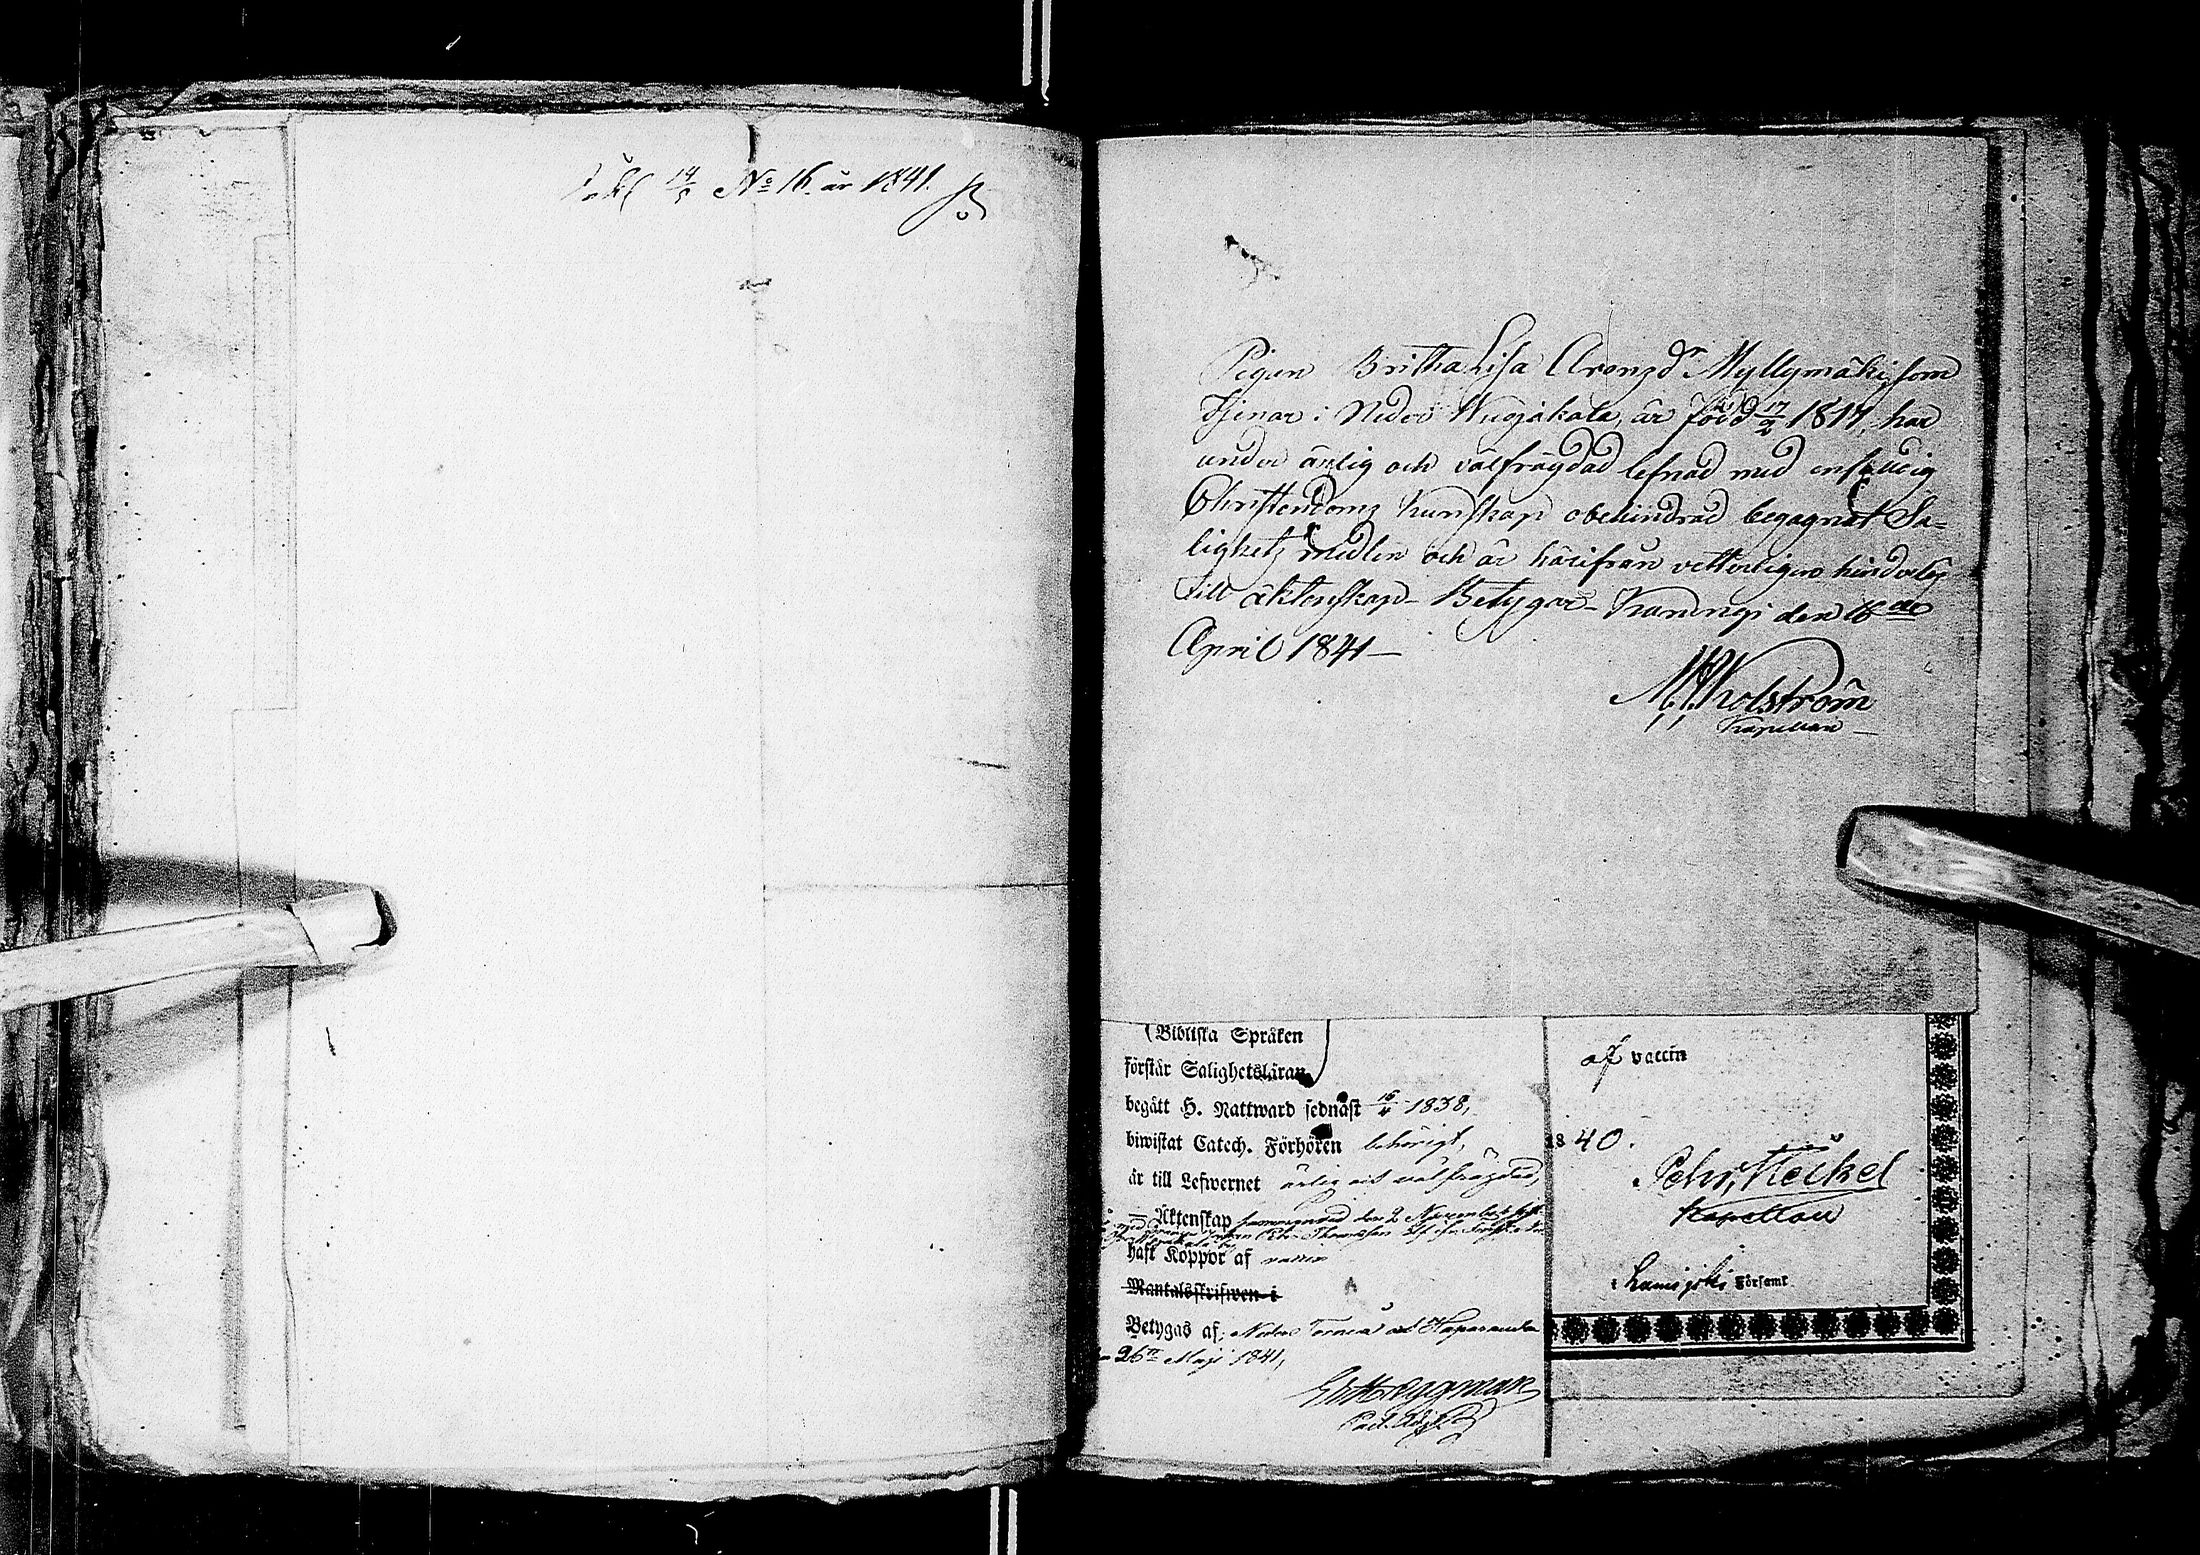 14/5 No 16 år 1841.
Pigan Britha Lisa Aronsdr Myllymäki, som
tjenar i Neder Wuojakala, är född 17/2 1817, har
under ärlig och välfrägdad lefnad med enskildig
Christendoms kunskap obehindrad begagnat Sa-
lighets medlen och är härifrån vetterligen hinderlös
till äktenskap – Betygar – Karungi den 16de
April 1841 –
Kolström
Kapellan –
Bibliska Språken
förstår Salighetsläran
begått H. Nattward sednast 1838,
biwistat Catech. Förhören behörigt,
är till Lefwernet ärlig och välfrägdad,
– Äktenskap den 2 November
med Peter Thomasson
haft Koppor af vaccin
Mantalsskrifwen i
Betygas af; Neder Torneå och Haparanda
26te Maji 1841,
Eggman
Past. Adj.
af vaccin
1840.
Pehr Heikel
Kapellan
i Församl.